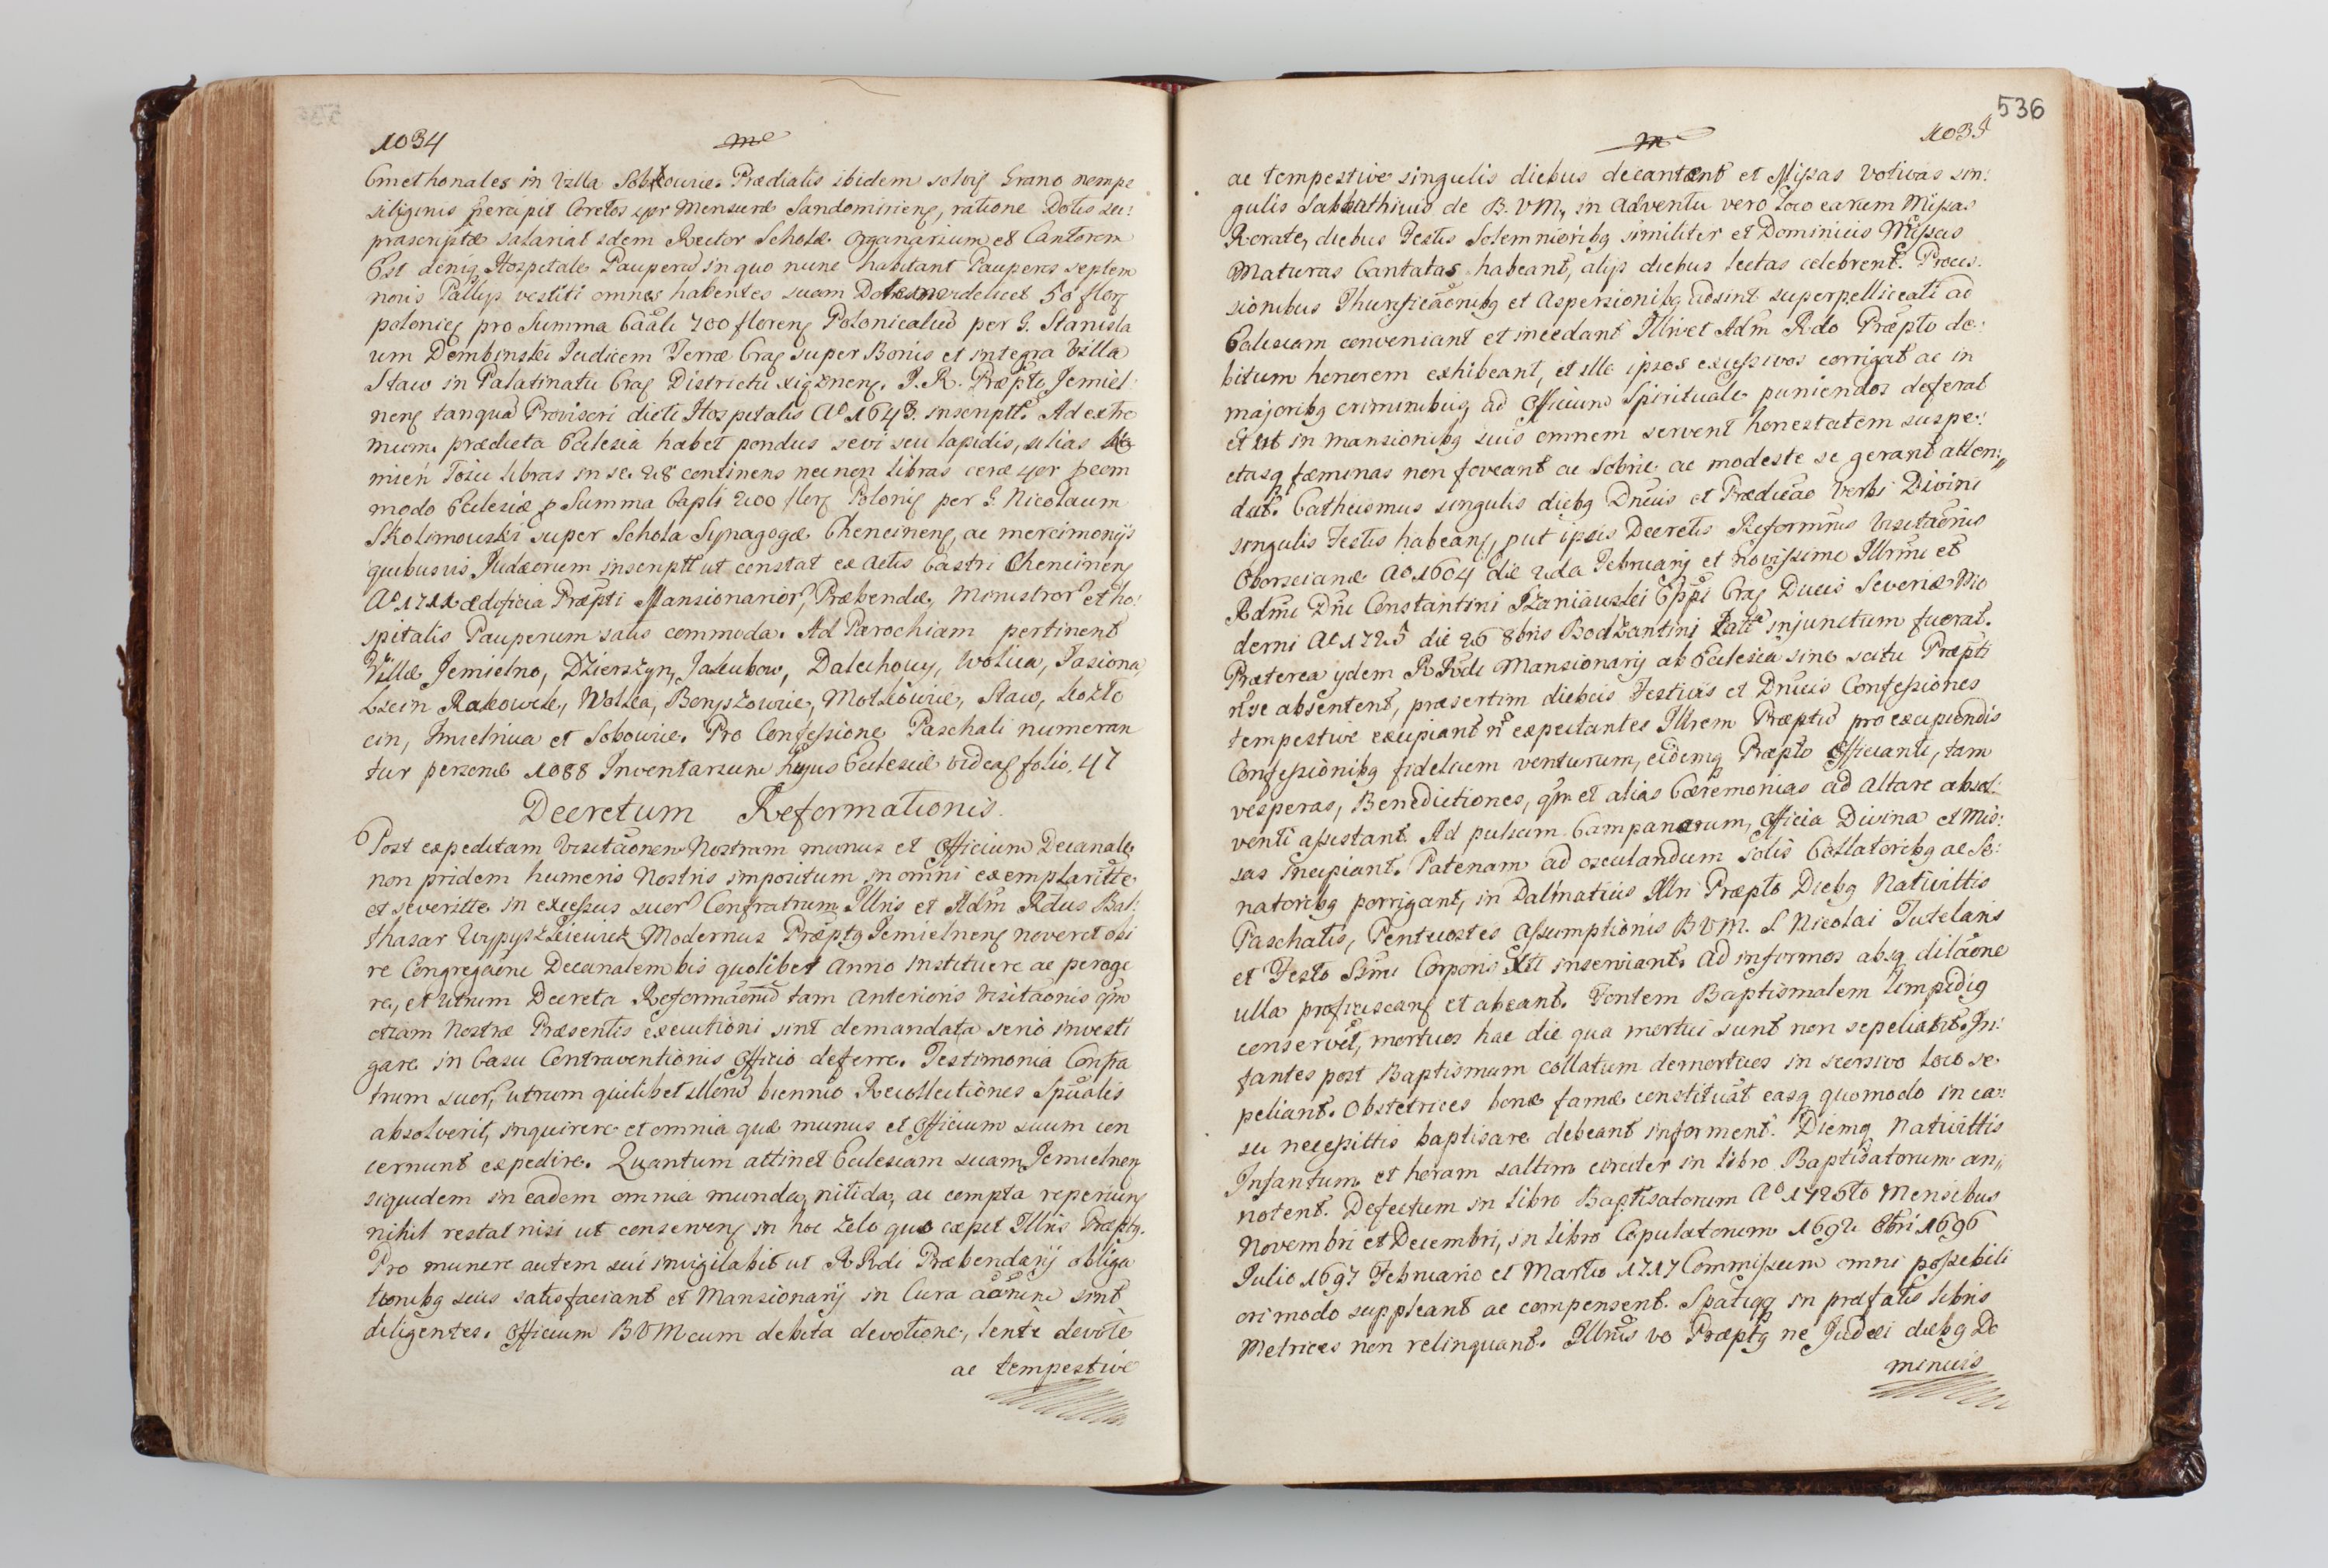 1034
m
Cmethonales in Villa Sobkowie. Prædialis ibidem solvi Grano nempe
siliginis percipit Coretos Mensuræ Sandomiriens, ratione Dotis su:
prascriptæ salariat idem Rector Scholæ Organarium et Cantorem
Est deniq Hospitale Pauperũ in quo nunc habitant Pauperes septem
novis Pallijs vestiti omnes habentes suam videlicet 50 flor
polonics pro Summa Caali 700 florens Polonicaliũ per G. Stanisla
um Dembinski Judicem Terræ Crac super Bonis et integra Villa
Staw in Palatinatu Crac Districtu P. R. Præpto Jemiel
nens tanquã Provisori dicti Hospitalis Aº 1643. inscriptt. Ad extre
mum prædicta Ecclesia habet pondus sevi seu lapidis, alias Ka
mien Toiu libras in se 28 continens nec non libras ceræ 4or
modo Ecclesiæ p Summa Capli 200 flor Polonic per G. Nicolaum
Skolimowski super Schola Synagogæ Chencinens, ac mercimonijs
quibusvis Judæorum inscriptt ut constat ex Actis Castri Chencinens
Aº 1721 ædificia Præpti Mansionarior, Præbendæ, Ministror et ho:
spitalis Pauperum satis commoda. Ad Parochiam pertinent
Villæ Jemielno, Dzierszyn, Jakubow, Dalechowy, Wolica, Jasiona,
Łścin Rakowek, Wolka, Bonyszowie, Motkowie, Staw, Kozło
cin, Imielnica et Sobowie. Pro Confessione Paschali numeran
tur personæ 1088 Inventarium hujus Ecclesiæ videas folio. 47
Decretum Reformationis.
Post expeditam Visitãonem Nostram munus et Officium Decanale
non pridem humeris Nostris impositum in omni exemplaritte
et severitte in excessus suor Confratrum Illris et Adm Rdus Bal:
thasar Wypyszkiewicz Modernus Præptq Jemielnens noverit obi
re Congregaõni Decanalem bis quolibet Anno Instituere ac perage
re, et utrum Decreta Reformãonũ tam Anterioris Visitãonis qm
etiam Nostræ Præsentis executioni sint demandata serio investi
gare in Casu Contraventionis Officio deferre. Testimonia Confra
trum suor, utrum quilibet illorũ biennio Recollectiones Spualis
absolverit, inquirere et omnia quæ munus et Officium suum con
cernunt expedire. Quantum attinet Ecclesiam suam Jemielnen
siquidem in eadem omnia munda, nitida, ac compta reperiuns
nihil restat nisi ut conservens in hoc zelo quo cæpit Illris Præptq.
Pro munere autem sui invigilabit ut RRdi Præbendarij obliga
tionibq suis satisfaciant et Mansionarij in Cura aãrum sint
diligentes. Officium BVM cum debita devotione, lentè devotè
ac tempestive
536
1035
m
ac tempestive singulis diebus decantent et Missas Votivas sin:
gulis Sabbathinis de B. VM, in Adventu vero Loco earum Missas
Rorate, diebus Festis Solemnioribq similiter et Dominicis Missas
Maturas Cantatas habeant, alijs diebus lectas celebrent. Proces.
sionibus Thurificãonibq et Aspersionibq adsint superpelliceati ad
Ecclesiam conveniant et incedant Illri et Adm Rdo Præpto de:
bitum honorem exhibeant, et ille ipsos excessivos corrigat ac in
majoribq criminibus, ad Officium Spirituale puniendos deferat
et ut in mansionibq suis omnem servent honestatem suspe:
ctasq fæminas non foveant ac Sobrie ac modeste se gerant atten:
dat. Cathecismus singulis diebq Dnicis et Prædicão Verbi Divini
singulis Festis habeans, put ipsis Decretis Reformnis Visitãonis
Oborscianæ Aº 1604 die 2da Februarij et novissime Illrmi et
Rdmi Dni Constantini Szaniawski Eppi Crac Ducis Severiæ Mo
derni Aº 1725 die 26 8bris Bodzantini Latt injunctum fuerat.
Præterea ijdem RRdi Mansionarij ab Ecclesia sine scitu Præpti
nse absentent, præsertim diebus Festivis et Dnicis Confessiones
tempestive excipiant ñ expectantes Illrem Præptũ pro excipiendis
Confessionibq fidelium venturum, eidemq Præpto Officianti, tam
vesperas, Benedictiones, qm et alias Cæremonias ad Altare absol:
venti assistant. Ad pulsum Campanarum, Officia Divina et Mis:
sas Incipiant. Patenam ad osculandum solis Collatoribq ac Se:
natoribq porrigant, in Dalmaticis Illri Præpto Diebq Nativittis
Paschatis, Pentecostes Assumptionis BVM. S Nicolai Tutelaris
et Festo Ssmi Corporis Xti inserviant. Ad infirmos absq dilãone
ulla proficiscans et abeant. Fontem Baptismalem limpidiq
conservet, mortuos hac die qua mortui sunt non sepeliant. In:
fantes post Baptismum collatum demortuos in seorsivo loco se.
peliant. Obstetrices bonæ famæ constituãt easq quomodo in ca:
su necessittis baptisare debeant informent. Diemq Nativittis
Infantum et horam saltim circiter in libro Baptisatorum an,,
notent. Defectum in Libro Baptisatorum Aº 1726to Mensibus
Novembri et Decembri, in libro Copulatorum 1692 8bri 1696
Julio 1697 Februario et Martio 1717 Commissum omni possebili
ori modo suppleant ac compensent. Spatiaq in præfatis libris
Metrices non relinquant. Illris vo Præptq ne Judæi diebq Do
minicis